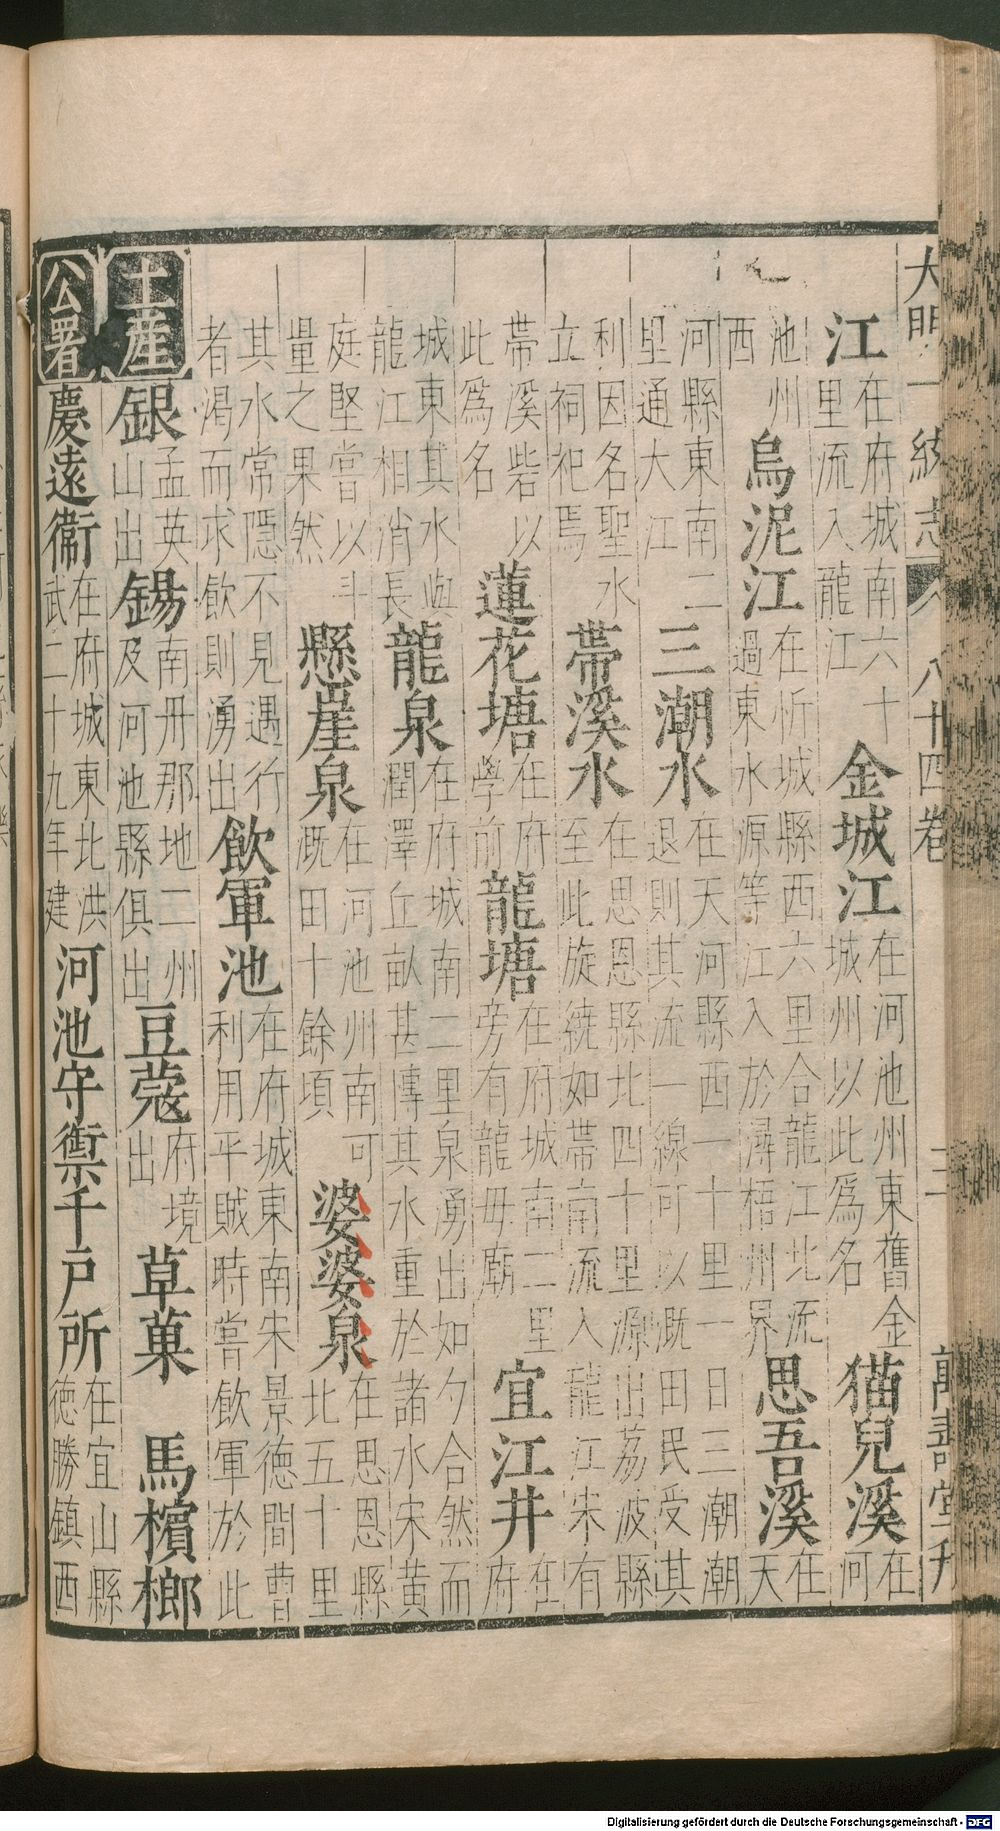 大明一統志 八十四卷 三 萬壽堂刊
江在府城南六十里流入龍江 金城江在河池州東舊金城州以此爲名 猫兒溪在河
池州西 烏泥江在忻城縣西六里合龍江北流過東水源等江入於潯梧州界 思吾溪在天
河縣東南二里通大江 三潮水在天河縣西一十里一日三潮潮退則其流一線可以溉田民受其
利因名聖水立祠祀焉 帶溪水在思恩縣北四十里源出荔波縣至此旋繞如帶南流入龍江宋有
帶溪砦以此爲名 蓮花塘在府學前 龍塘在府城南二里旁有龍母廟 宜江井在府
城東其水與龍江相消長 龍泉在府城南二里泉湧出如勺合然而潤澤丘畝甚博其水重於諸水宋黃
庭堅嘗以斗量之果然 懸崖泉在河池州南可溉田十餘頃 婆婆泉在思恩縣北五十里
其水常隱不見遇行者渴而求飲則湧出 飲軍池在府城東南宋景德間曹利用平賊時嘗飲軍於此
土產 銀孟英山出 錫南丹那地二州及河池縣俱出 豆蔻府境出 草菓 馬檳榔
公署 慶遠衛在府城東北洪武二十九年建 河池守禦千戶所在宜山縣德勝鎮西
Digitalisierung gefördert durch die Deutsche Forschungsgemeinschaft - DFG